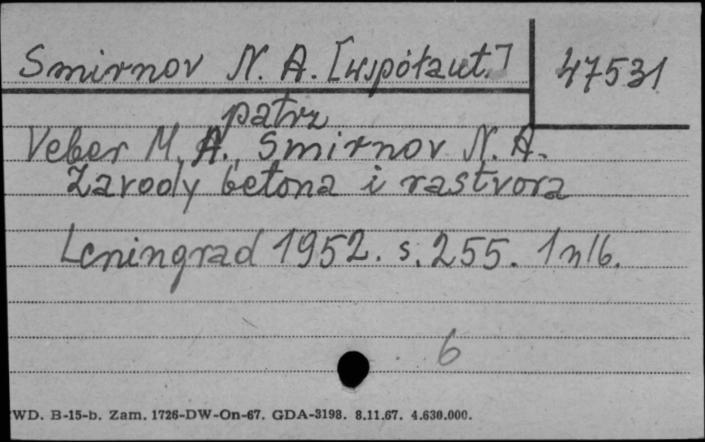 Smirnov N. A. [współaut.] 47531
patrz
Veber M. A., Smirnov N. A.
Zavody betona i rastvora
Leningrad 1952. s. 255. 1 nlb.
6
WD. B-15-b. Zam. 1726-DW-On-67. GDA-3198. 8.11.67. 4.630.000.